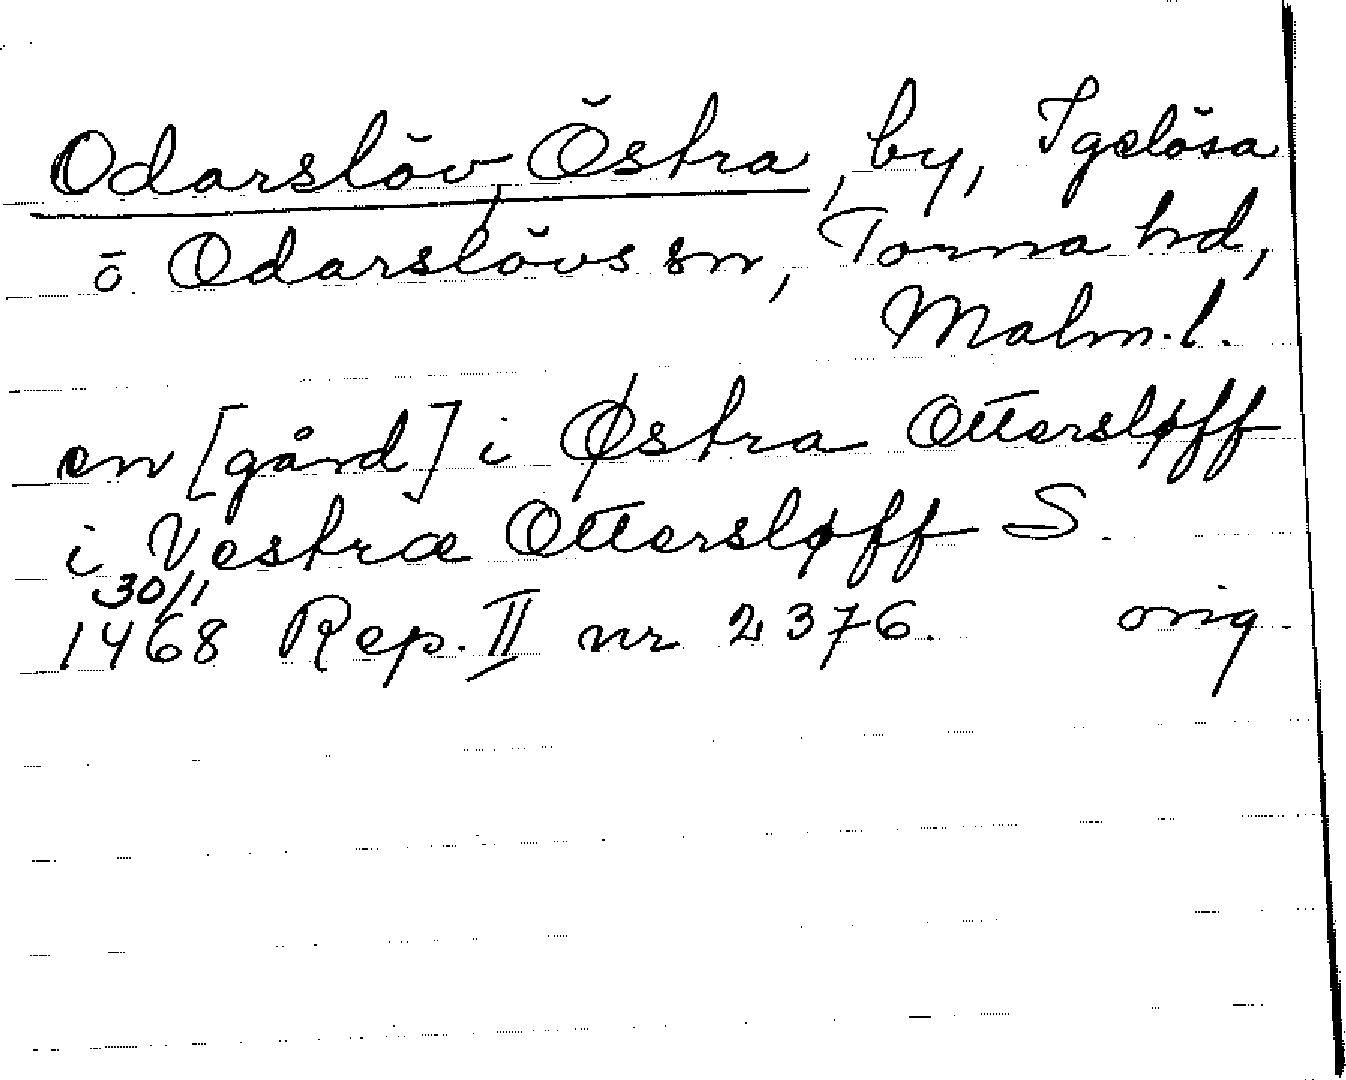 Odarslöv, Östra, by, Igelösa
o Odarslövs sn, Torna hd,
Malm.l.
en [gård] i Østra Ottersløff
i Vestræ Ottersløff S.
30/1
1468 Rep. II nr 2376. orig